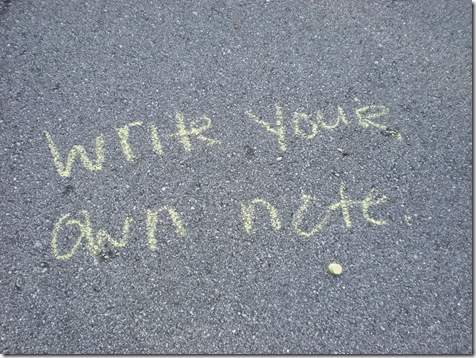 write your
own note